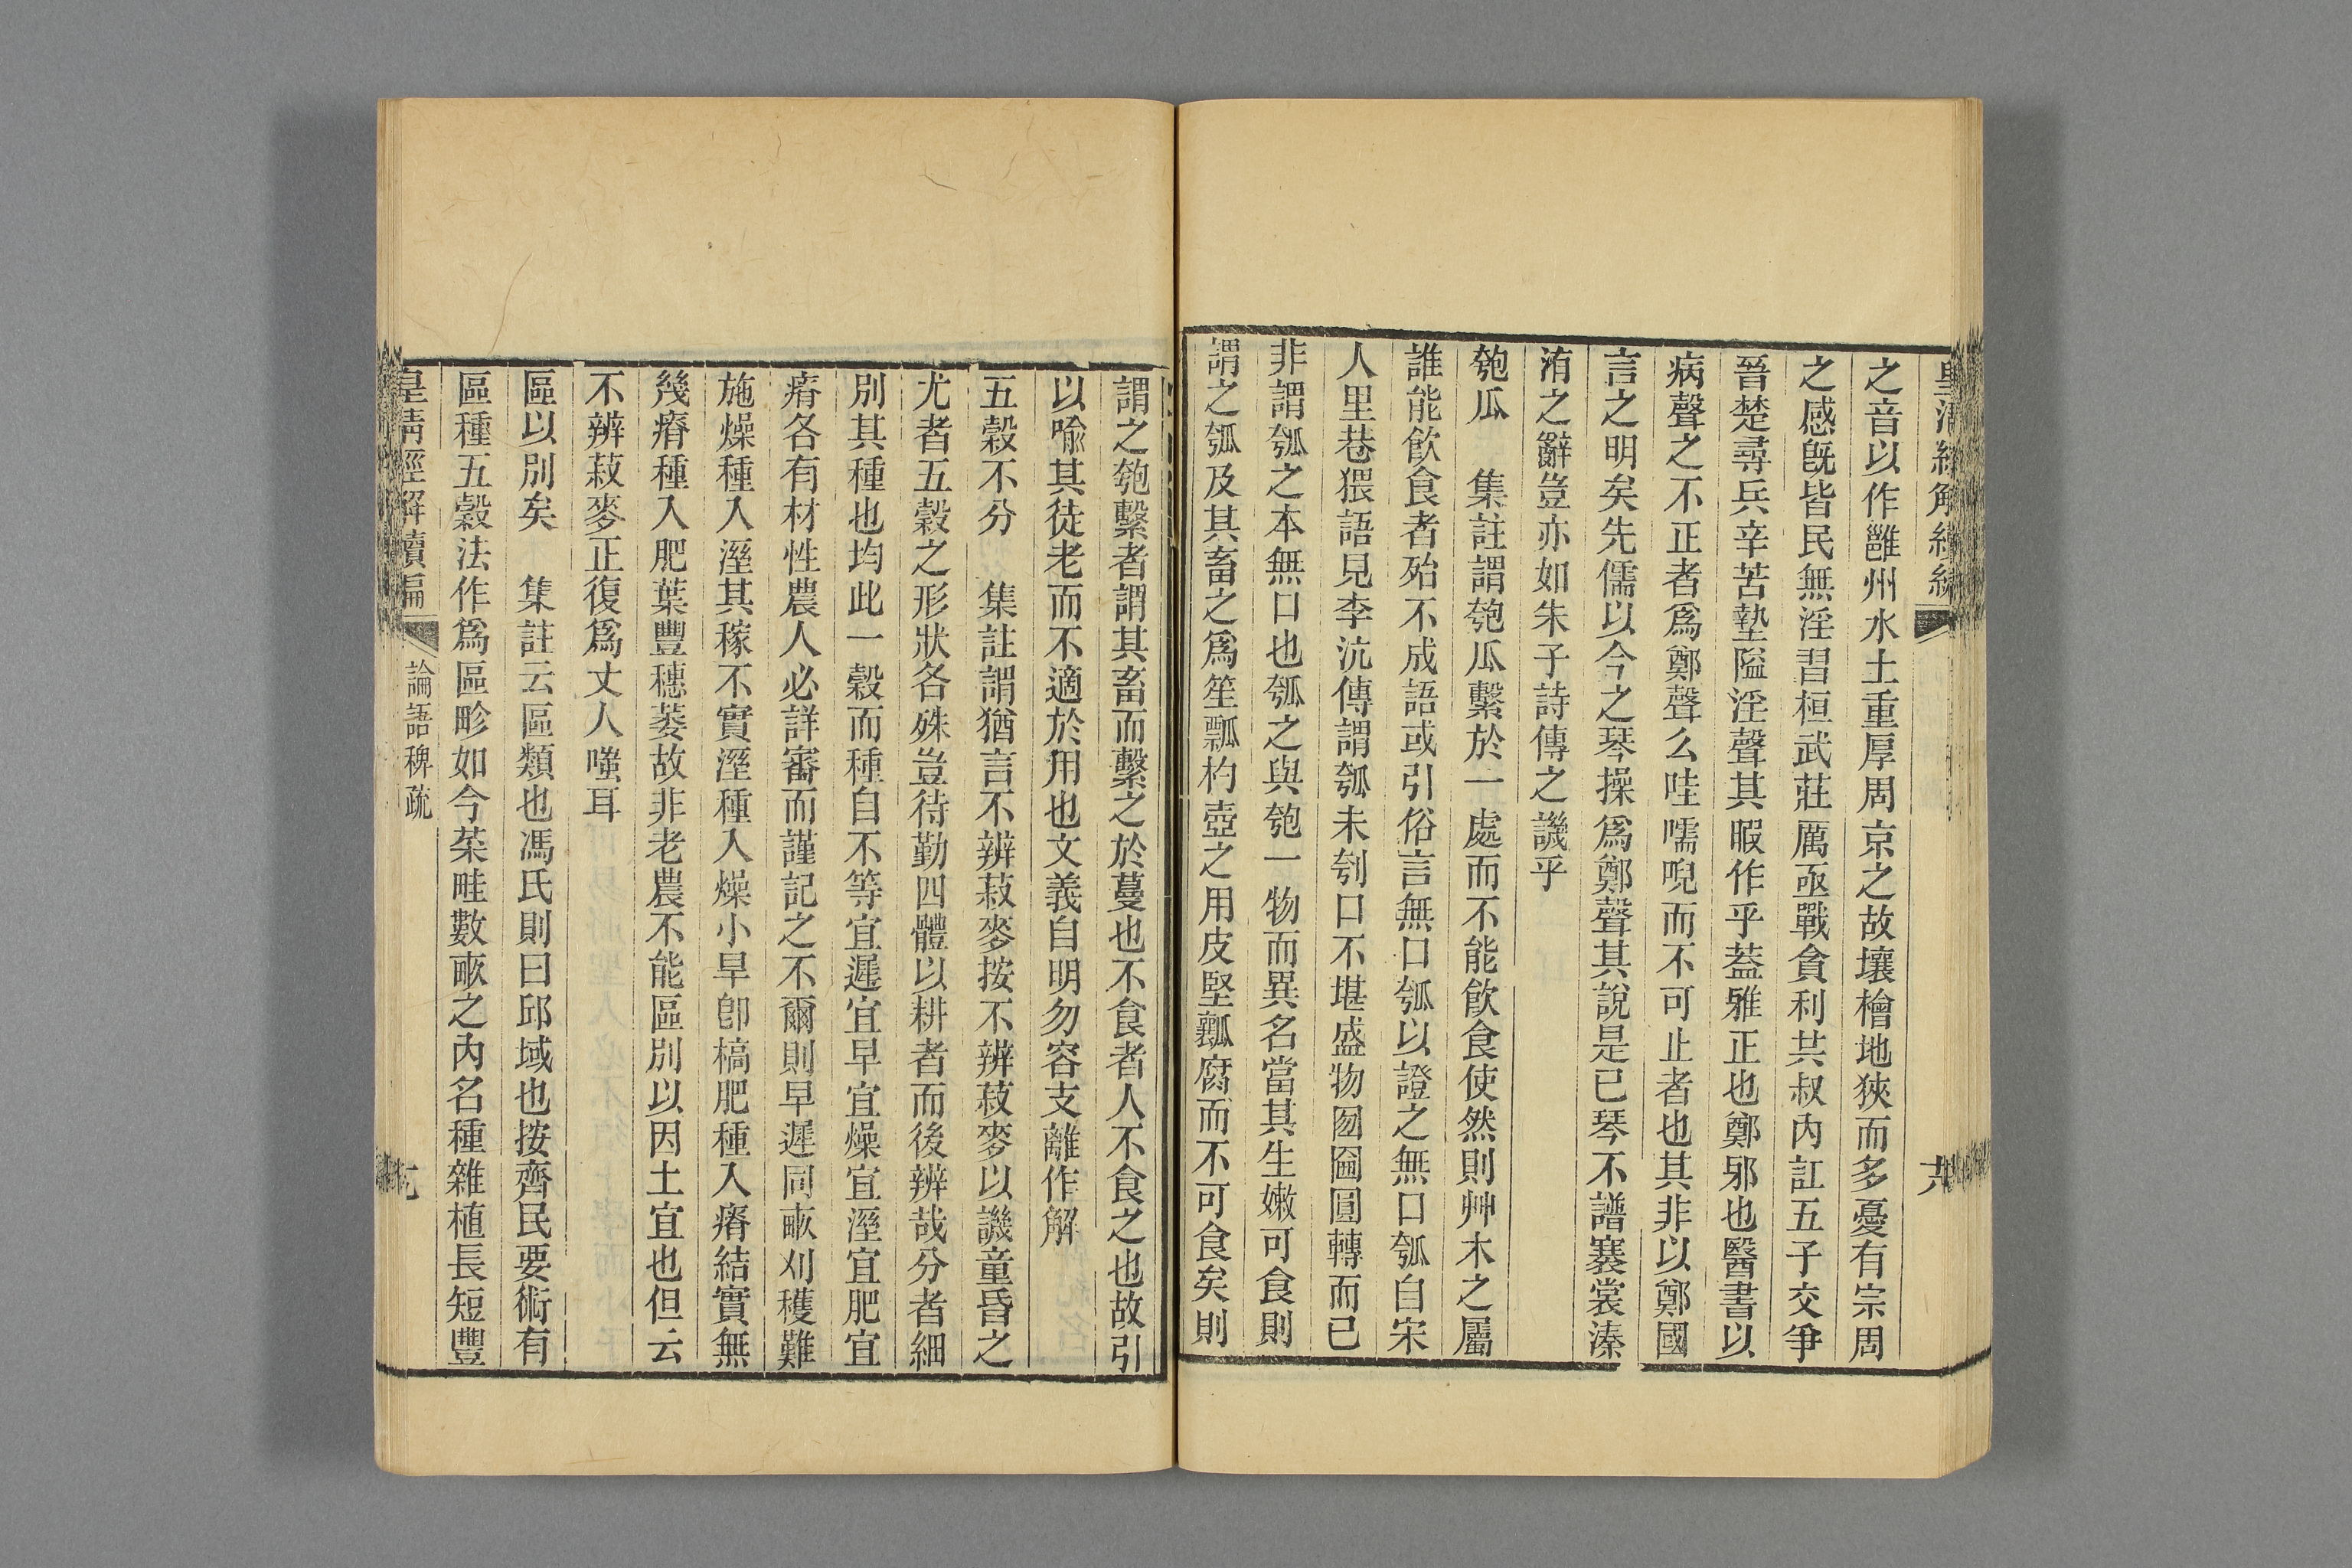 皇清經解續編
十八
之音以作雝州水土重厚周京之故壤檜地狹而多憂有宗周
之感旣皆民無淫習桓武莊厲亟戰貪利共叔內訌五子交爭
晉楚尋兵辛苦墊隘淫聲其暇作乎葢雅正也鄭邪也醫書以
病聲之不正者爲鄭聲么哇嚅唲而不可止者也其非以鄭國
言之明矣先儒以今之琴操爲鄭聲其說是已琴不譜褰裳溱
洧之辭豈亦如朱子詩傳之譏乎
匏瓜　集註謂匏瓜繫於一處而不能飮食使然則艸木之屬
誰能飮食者殆不成語或引俗言無口瓠以證之無口瓠自宋
人里巷猥語見李沆傳謂瓠未刳口不堪盛物囫圇圓轉而已
非謂瓠之本無口也瓠之與匏一物而異名當其生嫩可食則
謂之瓠及其畜之爲笙瓢杓壺之用皮堅瓤腐而不可食矣則
謂之匏繫者謂其畜而繫之於蔓也不食者人不食之也故引
以喻其徒老而不適於用也文義自明勿容支離作解
五穀不分　集註謂猶言不辨菽麥按不辨菽麥以譏童昏之
尤者五穀之形狀各殊豈待勤四體以耕者而後辨哉分者細
別其種也均此一穀而種自不等宜遲宜早宜燥宜溼宜肥宜
瘠各有材性農人必詳審而謹記之不爾則早遲同畝刈穫難
施燥種入溼其稼不實溼種入燥小旱卽槁肥種入瘠結實無
幾瘠種入肥葉豐穗萎故非老農不能區別以因土宜也但云
不辨菽麥正復爲丈人嗤耳
區以別矣　集註云區類也馮氏則曰邱域也按齊民要術有
區種五穀法作爲區畛如今菜畦數畝之內名種雜植長短豐
皇清經解續編
論語稗疏